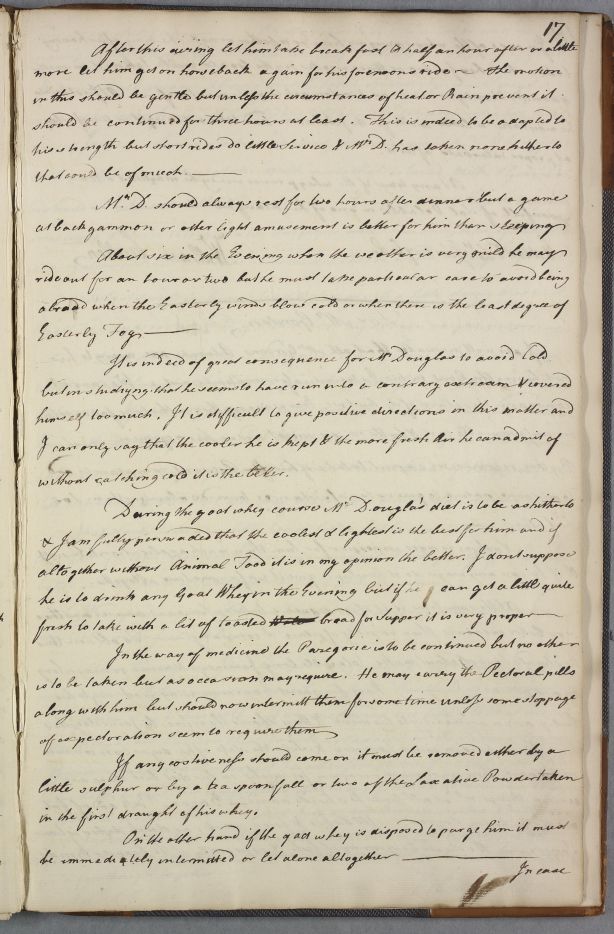 17
After this airing let him take breakfast & half an hour after or a little
more let him get on horseback again for his forenoons ride – the motion
in this should be gentle but unless the circumstances of heat or Rain prevent it
should be continued for three hours at least. This is indeed to be adapted to
his strength but short rides do little Service & Mr. D. has taken none hitherto
that could be of much. —
Mr. D. should always rest for two hours after dinner but a game
at backgammon or other light amusement is better for him than sleeping
About six in the Evening when the weather is very mild he may
ride out for an hour or two but he must take particular care to avoid being
abroad when the Easterly winds blow cold or when there is the least degree of
Easterly Fog —
It is indeed of great consequence for Mr Douglas to avoid Cold
but in studying that he seems to have run into a contrary extream & covered
himself too much. It is difficult to give positive directions in this matter and
I can only say that the cooler he is kept & the more fresh Air he can admit of
without catching cold it is the better.
During the goat whey course Mr Douglas' diet is to be as hitherto
& I am fully perswaded that the coolest & lightest is the best for him and if
altogether without Animal Food it is in my opinion the better. I dont suppose
he is to drink any Goat Whey in the Evening but if he can get a little quite
fresh to take with a bit of toasted bread for Supper it is very proper —
In the way of medicine the Paregoric is to be continued but no other
is to be taken but as occasion may require. He may carry the Pectoral pills
along with him but should now intermitt them for some time unless some stoppage
of expectoration seem to require them
If any costiveness should come on it must be removed either by a
little sulphur or by a tea spoonfull or two of the Laxative Powder taken
in the first draught of his whey.
On the other hand if the goat whey is disposed to purge him it must
be immediately intermitted or let alone altogether —
In case